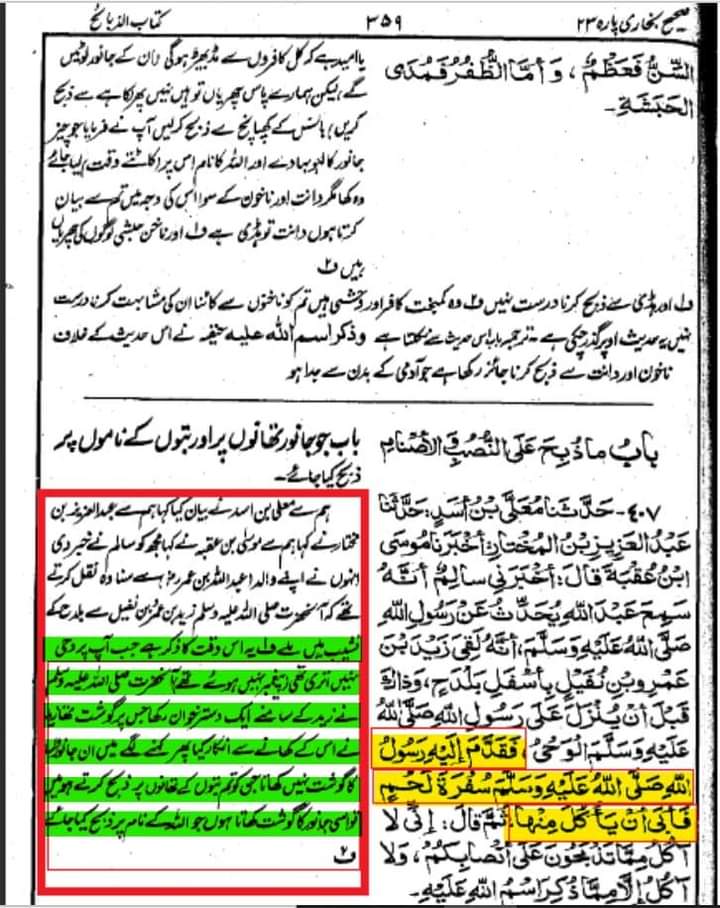 صحیح بخاری پارہ ۲۳
۳۵۹
کتاب الذبائح
السِّنُّ فَعَظْمٌ، وَأَمَّا الظُّفُرُ فَمُدَى
الحَبَشَةِ۔
یا امید ہے کہ کل کافروں سے مڈبھیڑ ہوگی ان کے جانور لوٹیں
گے لیکن ہمارے پاس چھریاں تو ہیں نہیں پھر کاہے سے ذبح
کریں بانس کے کھپانچ سے ذبح کرلیں آپ نے فرمایا جو چیز
جانور کا لہو بہا دے اور اللہ کا نام اس پر کاٹتے وقت لیا جائے
وہ کھا مگر دانت اور ناخون کے سوا اس کی وجہ میں تم سے بیان
کرتا ہوں دانت تو ہڈی ہے ف۱ اور ناخن حبشی لوگوں کی چھریاں
ہیں ف۲
ف۱ اور ہڈی سے ذبح کرنا درست نہیں ف۲ وہ کمبخت کافر اور وحشی ہیں تم کو ناخنوں سے کاٹنا ان کی مشابہت کرنا درست
نہیں یہ حدیث اوپر گذر چکی ہے۔ ترجمہ باب اس حدیث سے نکلتا ہے وذکر اسم اللہ علیہ حنیفہ نے اس حدیث کے خلاف
ناخون اور دانت سے ذبح کرنا جائز رکھا ہے جو آدمی کے بدن سے جدا ہو
بَابُ مَا ذُبِحَ عَلَى النُّصُبِ وَالأَصْنَامِ
۴۰۷- حَدَّثَنَا مُعَلَّى بْنُ أَسَدٍ: حَدَّثَنَا
عَبْدُ الْعَزِيزِ بْنُ الْمُخْتَارِ: أَخْبَرَنَا مُوسَى
ابْنُ عُقْبَةَ قَالَ: أَخْبَرَنِي سَالِمٌ أَنَّهُ
سَمِعَ عَبْدَ اللهِ يُحَدِّثُ عَنْ رَسُولِ اللهِ
صَلَّى اللهُ عَلَيْهِ وَسَلَّمَ، أَنَّهُ لَقِيَ زَيْدَ بْنَ
عَمْرِو بْنِ نُفَيْلٍ بِأَسْفَلِ بَلْدَحٍ، وَذَاكَ
قَبْلَ أَنْ يُنْزَلَ عَلَى رَسُولِ اللهِ صَلَّى اللهُ
عَلَيْهِ وَسَلَّمَ الْوَحْيُ فَقَدَّمَ إِلَيْهِ رَسُولُ
اللهِ صَلَّى اللهُ عَلَيْهِ وَسَلَّمَ سُفْرَةَ لَحْمٍ
فَأَبَى أَنْ يَأْكُلَ مِنْهَا، ثُمَّ قَالَ: إِنِّي لَا
آكُلُ مِمَّا تَذْبَحُونَ عَلَى أَنْصَابِكُمْ، وَلَا
آكُلُ إِلَّا مِمَّا ذُكِرَ اسْمُ اللهِ عَلَيْهِ۔
باب جو جانور تھانوں پر اور بتوں کے ناموں پر
ذبح کیا جائے۔
ہم سے معلیٰ بن اسد نے بیان کیا کہا ہم سے عبدالعزیز بن
مختار نے کہا ہم سے موسیٰ بن عقبہ نے کہا مجھ کو سالم نے خبر دی
انہوں نے اپنے والد عبداللہ بن عمر رض سے سنا وہ نقل کرتے
تھے کہ آنحضرت صلی اللہ علیہ وسلم زید بن عمرو بن نفیل سے بلدح کے
نشیب میں ملے ف۱ یہ اس وقت کا ذکر ہے جب آپ پر وحی
نہیں اتری تھی (پیغمبر نہیں ہوئے تھے) آنحضرت صلی اللہ علیہ وسلم
نے زید کے سامنے ایک دسترخوان رکھا جس پر گوشت تھا زید
نے اس کے کھانے سے انکار کیا پھر کہنے لگے میں ان جانوروں
کا گوشت نہیں کھاتا جن کو تم بتوں کے تھانوں پر ذبح کرتے ہو میں
تو اسی جانور کا گوشت کھاتا ہوں جو اللہ کے نام پر ذبح کیا جائے
ف۲